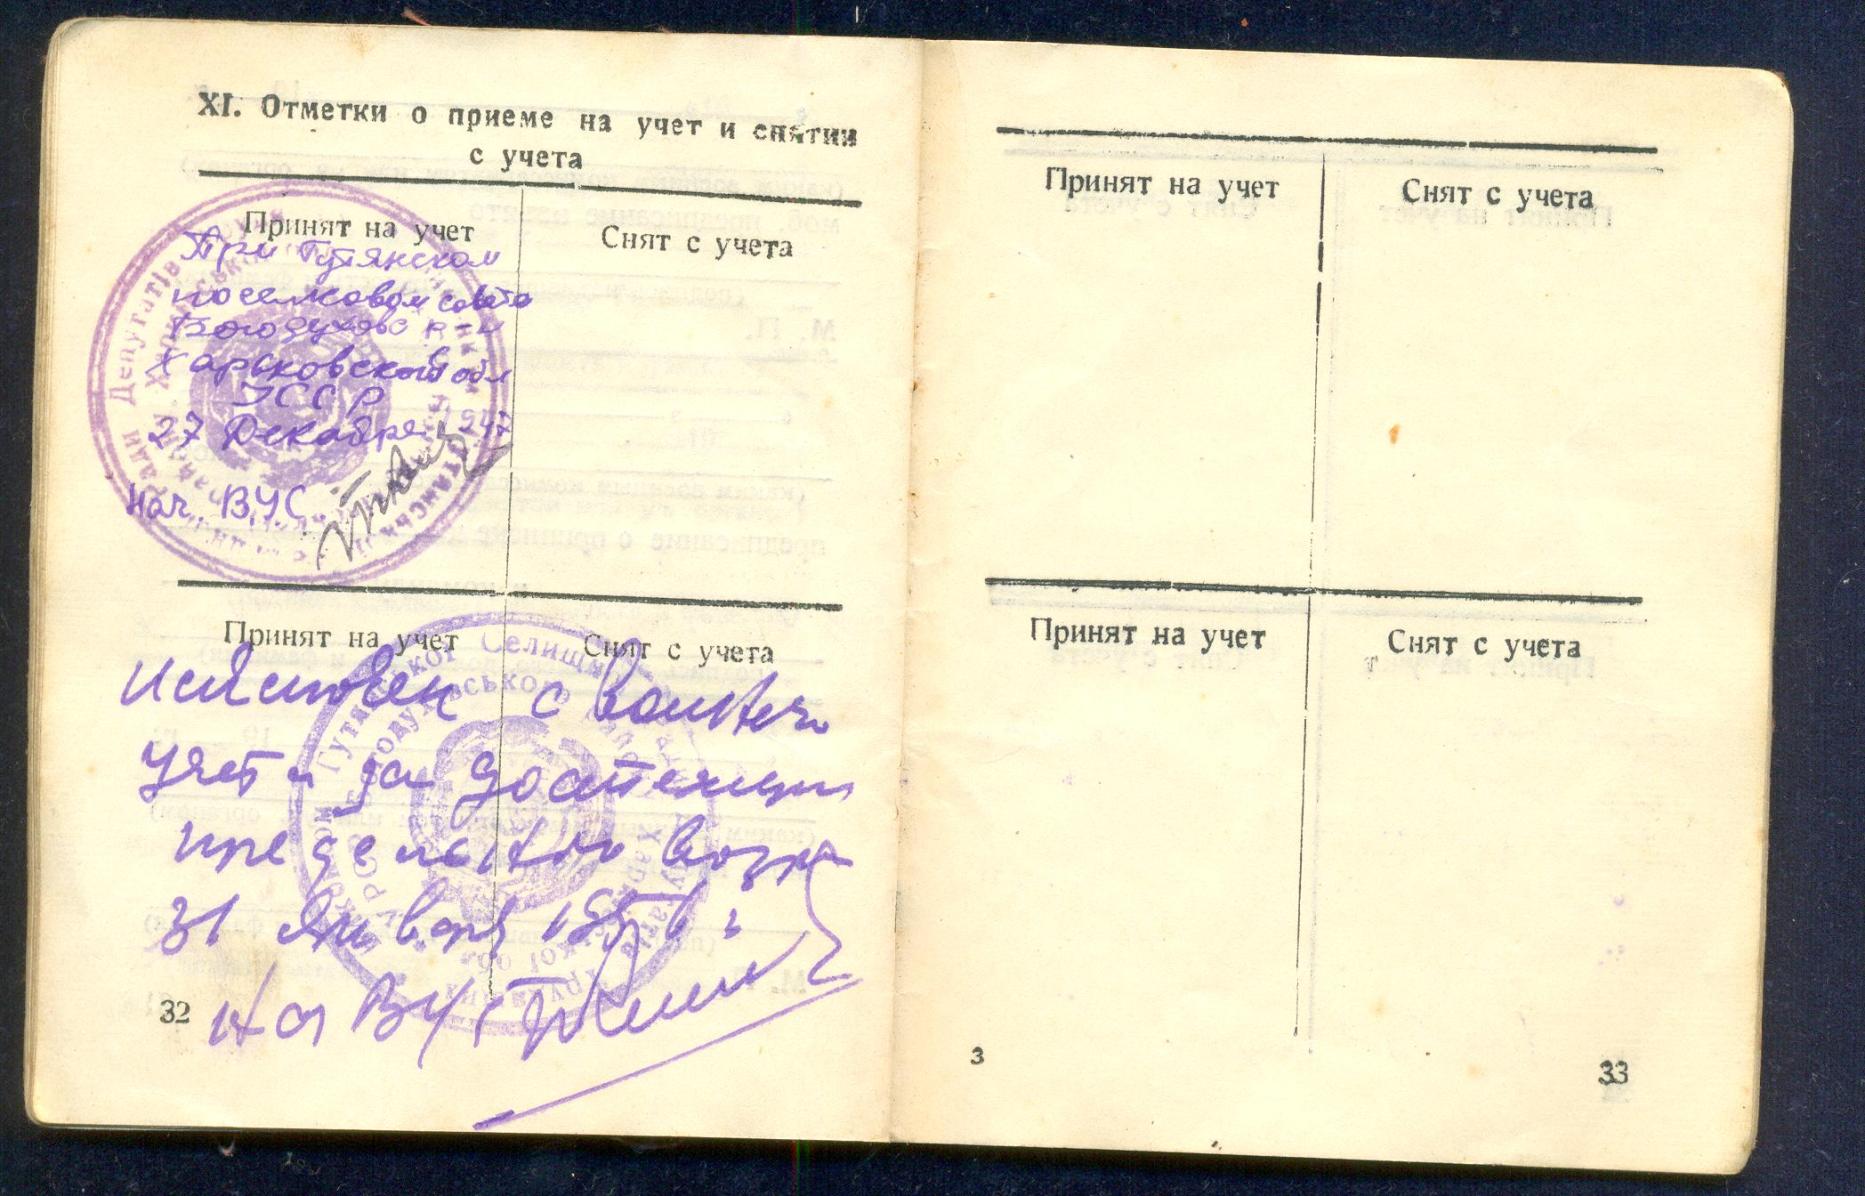 XI. Отметки о приеме на учет и снятии
с учета
Принят на учет
Снят с учета
При Гутянском
поселковом совете
Богодуховс р-н
Харьковской обл
УССР
27 Декабря 1947
Нач. ВУС
Принят на учет
Снят с учета
с
учета за
предельного
31 января 1956 г
ВУС
32
Принят на учет
Снят с учета
Принят на учет
Снят с учета
3
33